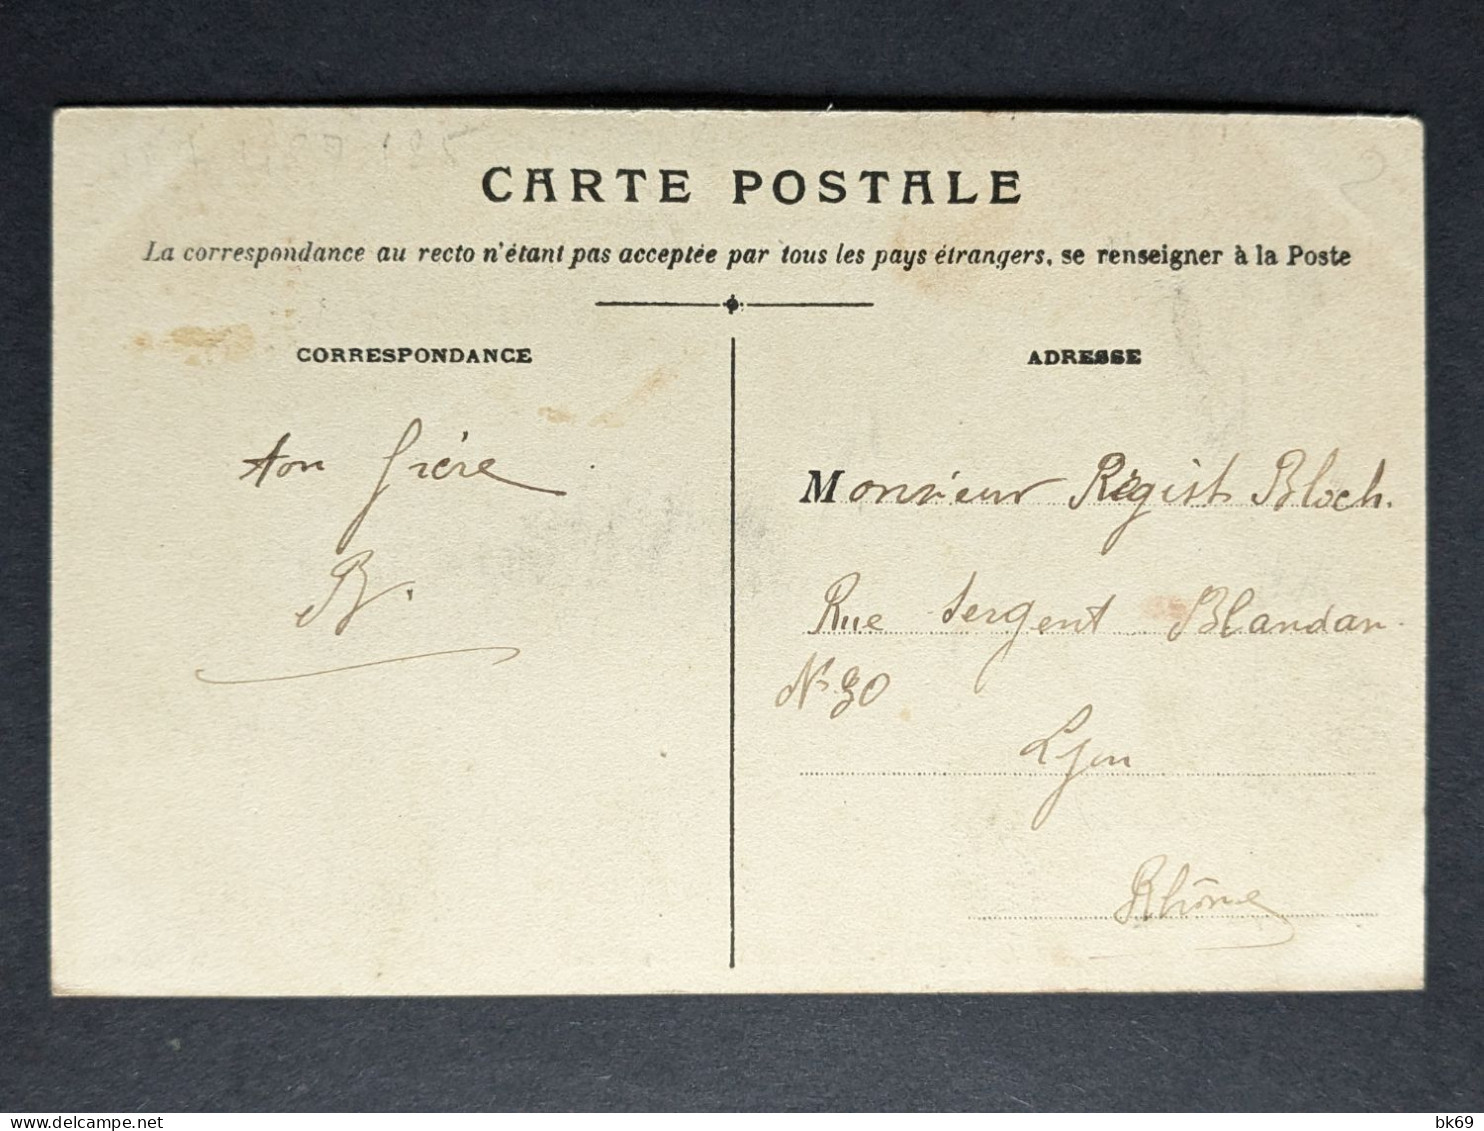 CARTE POSTALE
La correspondance au recto n'étant pas acceptée par tous les pays étrangers, se renseigner à la Poste
CORRESPONDANCE
ADRESSE
ton frère
B.
Monsieur Régist Bloch.
Rue Sergent Blandan.
N° 30
Lyon
Rhône
bk69